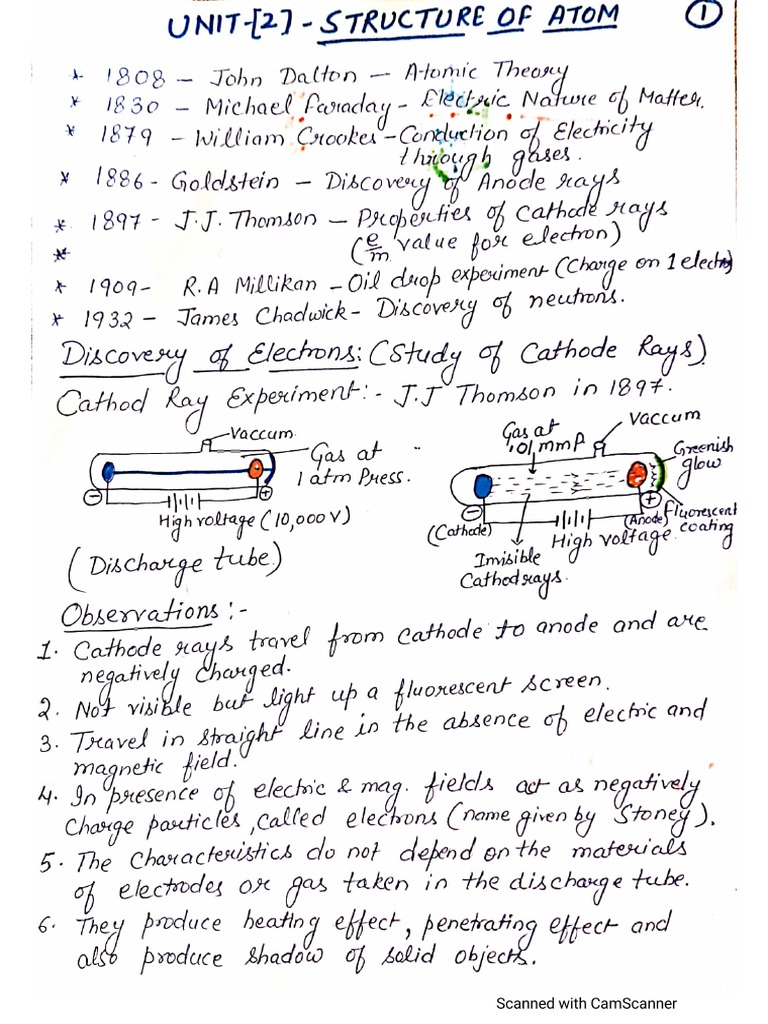 UNIT-[2] - STRUCTURE OF ATOM
1
* 1808 – John Dalton – Atomic Theory
* 1830 – Michael Faraday - Electric Nature of Matter.
* 1879 – William Crookes – Conduction of Electricity
through gases.
* 1886 - Goldstein – Discovery of Anode rays
* 1897 - J.J. Thomson – Properties of Cathode rays
* (e/m value for electron)
* 1909 - R.A Millikan – Oil drop experiment (Charge on 1 electron)
* 1932 – James Chadwick - Discovery of neutrons.
Discovery of Electrons: (Study of Cathode Rays).
Cathod Ray Experiment:- J.J Thomson in 1897.
Vaccum
Gas at
1 atm Press.
⊖
⊕
High voltage (10,000 V)
(Discharge tube)
Gas at
.01 mm P
Vaccum
Greenish
glow
⊖
⊕
(Cathode)
(Anode)
Fluorescent
coating
High voltage
Invisible
Cathod rays.
Observations :-
1. Cathode rays travel from cathode to anode and are
negatively charged.
2. Not visible but light up a fluorescent screen.
3. Travel in straight line in the absence of electric and
magnetic field.
4. In presence of electric & mag. fields act as negatively
charge particles, called electrons (name given by Stoney).
5. The characteristics do not depend on the materials
of electrodes or gas taken in the discharge tube.
6. They produce heating effect, penetrating effect and
also produce shadow of solid objects.
Scanned with CamScanner